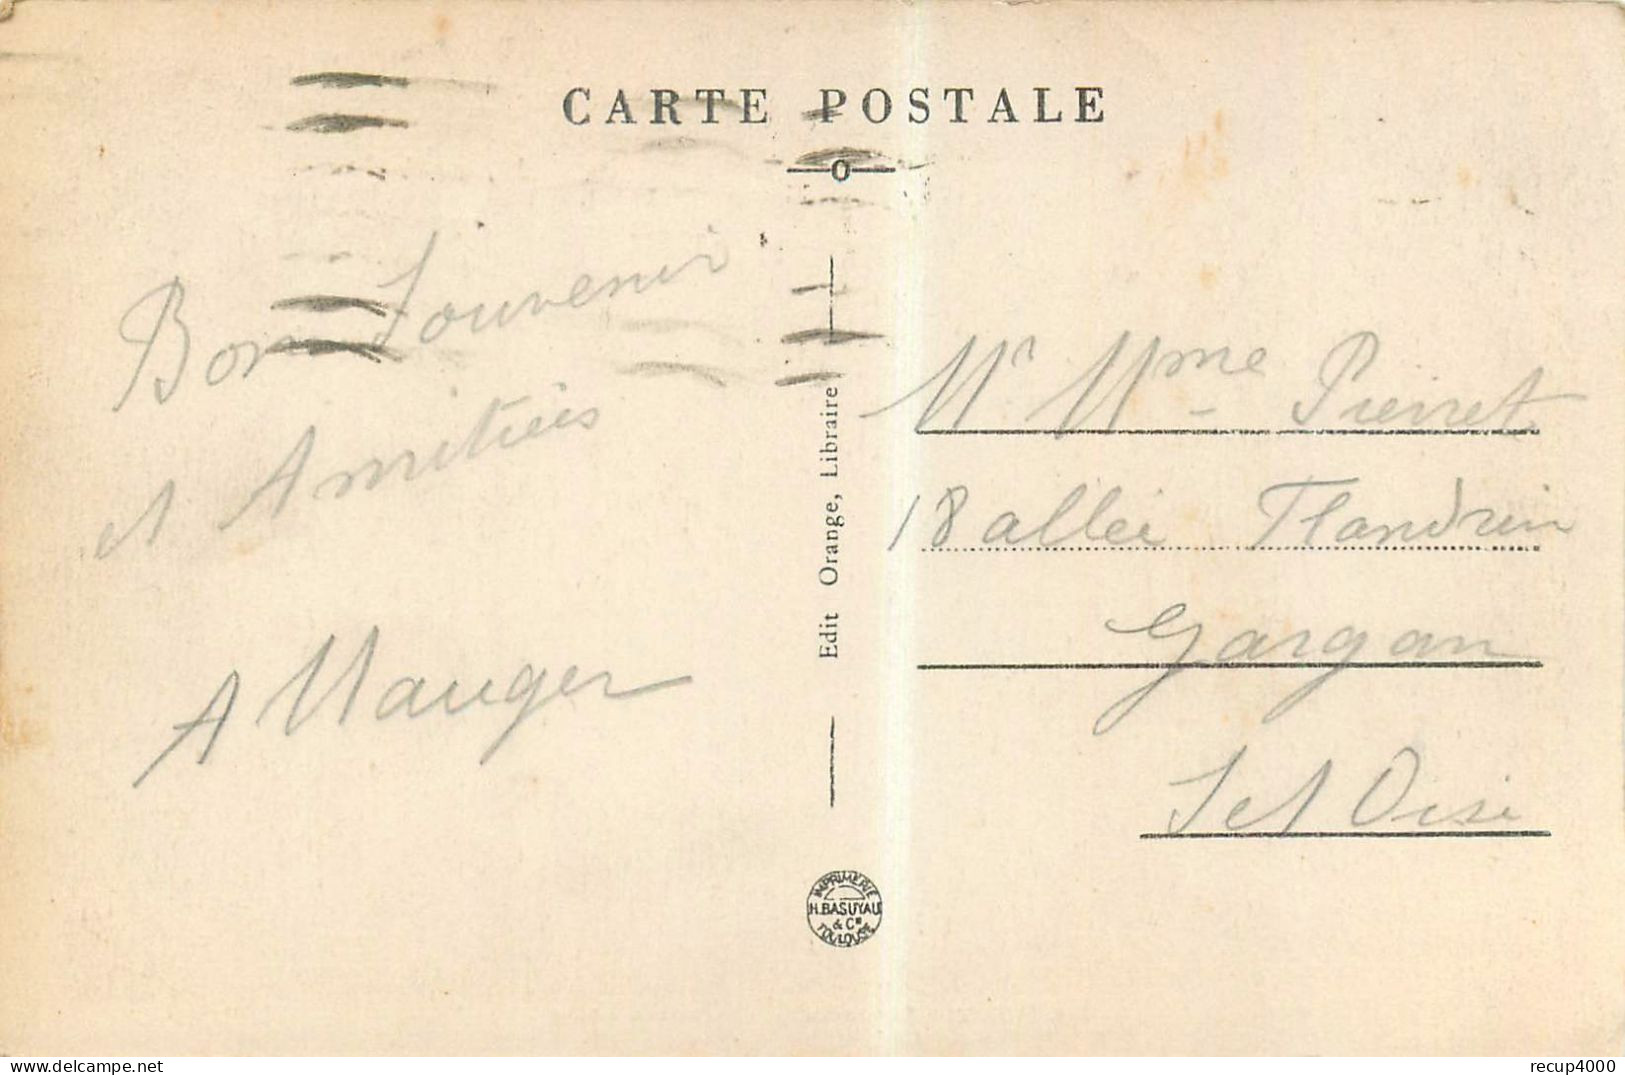 CARTE POSTALE
Bon Souvenir
et Amitiés
A Mauger
Edit Orange, Libraire
Mr Mme Pierret
18 allée Flandrin
Gargan
S et Oise
IMPRIMERIE
H. BASUYAU
& Cie
TOULOUSE
delcampe.net
recup4000